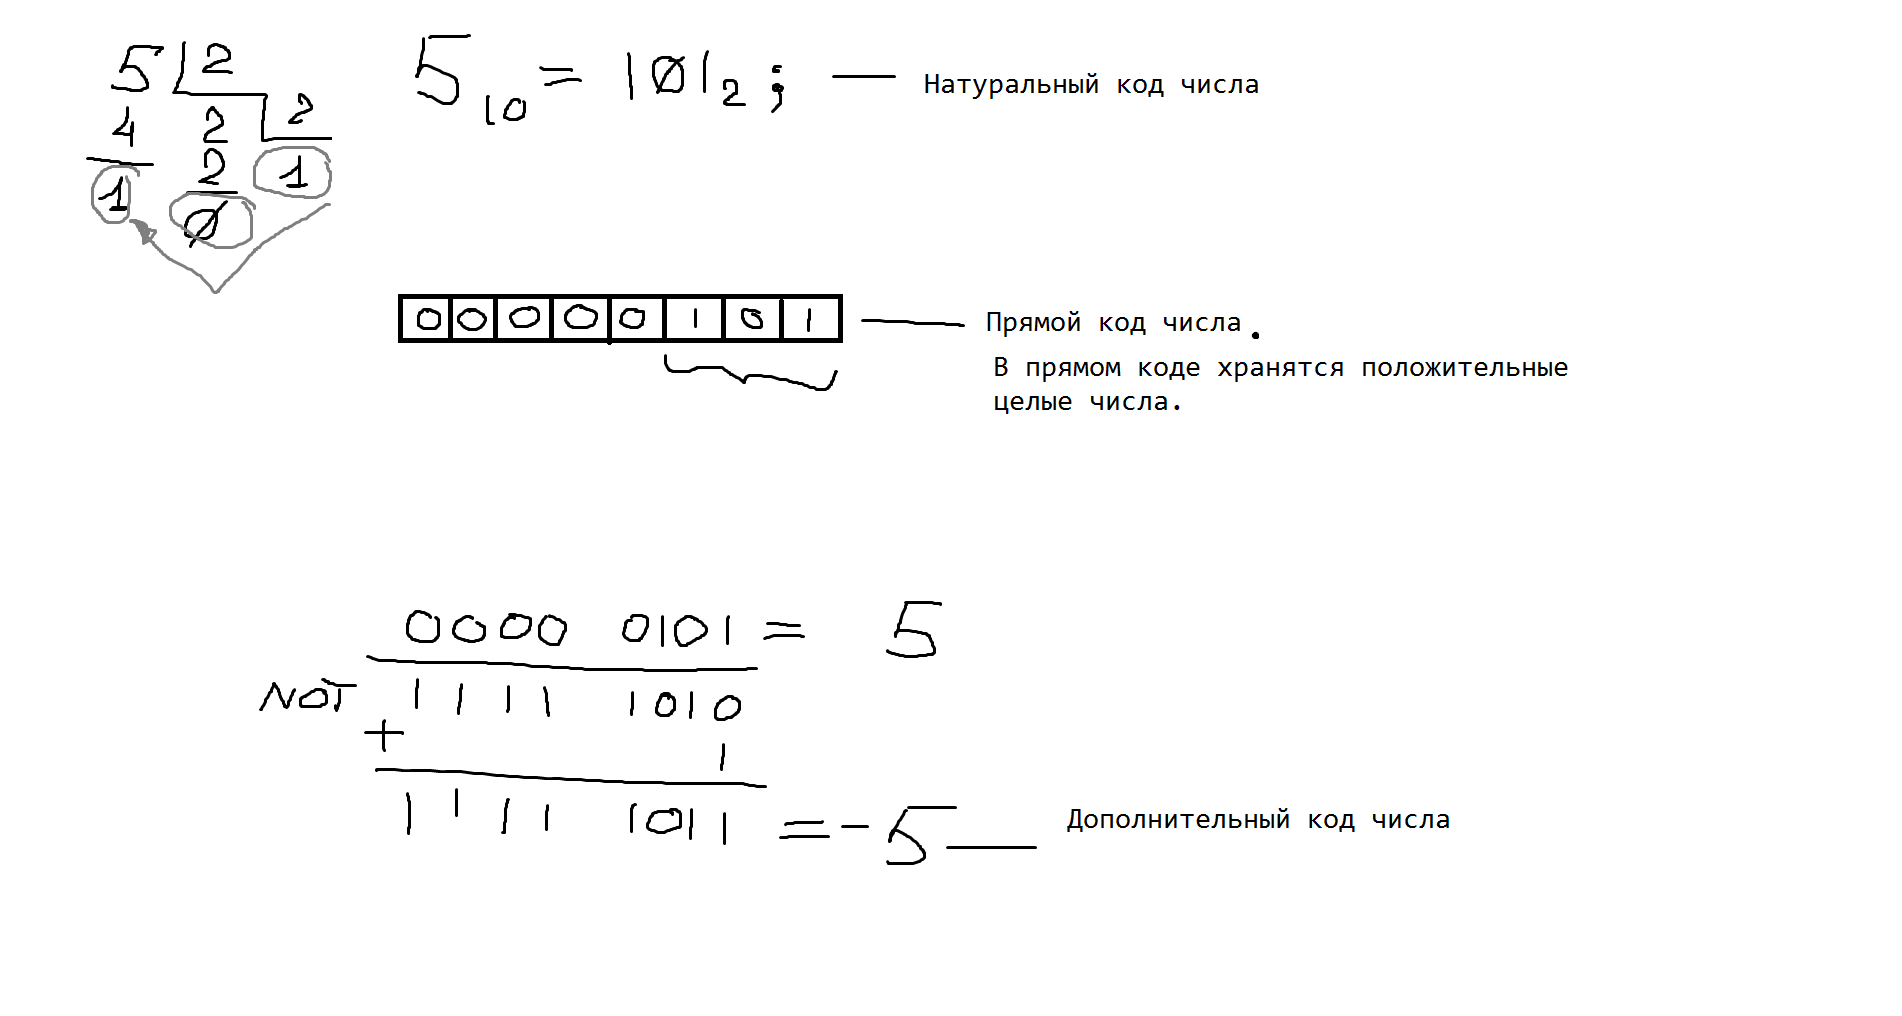 5 2
4 2 2
2
1 1
0
5₁₀ = 101₂ ; — Натуральный код числа
0 0 0 0 0 1 0 1 — Прямой код числа.
В прямом коде хранятся положительные
целые числа.
0000 0101 = 5
NOT 1111 1010
+ 1
1111 1011 = -5 — Дополнительный код числа